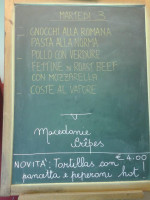 MARTEDÌ 3
GNOCCHI ALLA ROMANA
PASTA ALLA NORMA
POLLO CON VERDURE
FETTINE DI ROAST BEEF
CON MOZZARELLA
COSTE AL VAPORE
Macedonia
Crêpes
€ 4.00
NOVITA': Tortillas con
pancetta e peperoni hot!